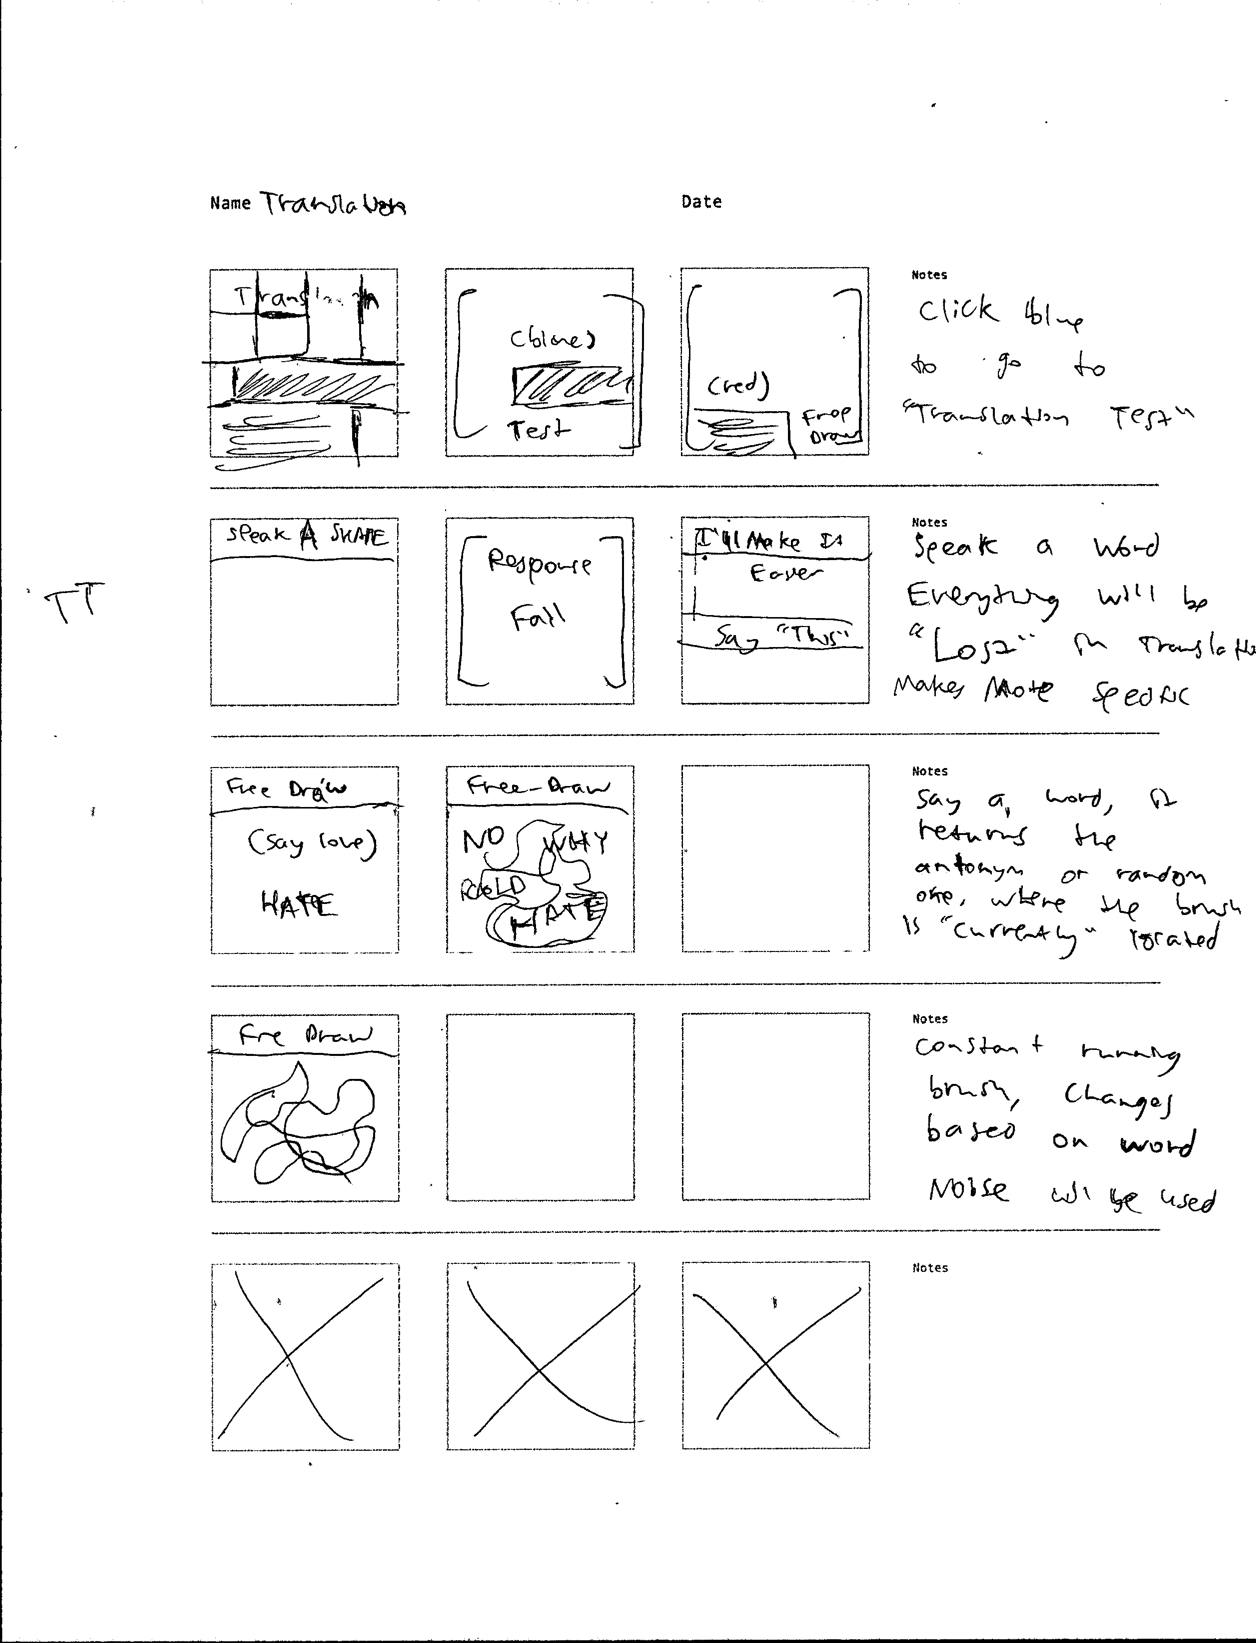 Name Translation
Date
Translation
(blue)
Test
(red)
Free
Draw
Notes
Click blue
to go to
"Translation Test"
TT
Speak A SHAPE
Response
Fail
I'll Make It
Easier
Say "This"
Notes
Speak a word
Everything will be
"Lost" in Translatio
Makes More Specific
Free Draw
(Say love)
HATE
Free-Draw
NO WHY
HATE
Notes
Say a word, it
returns the
antonym or random
one, where the brush
is "currently" located
Fre Draw
Notes
Constant running
brush, Changes
based on word
Noise wi be used
Notes